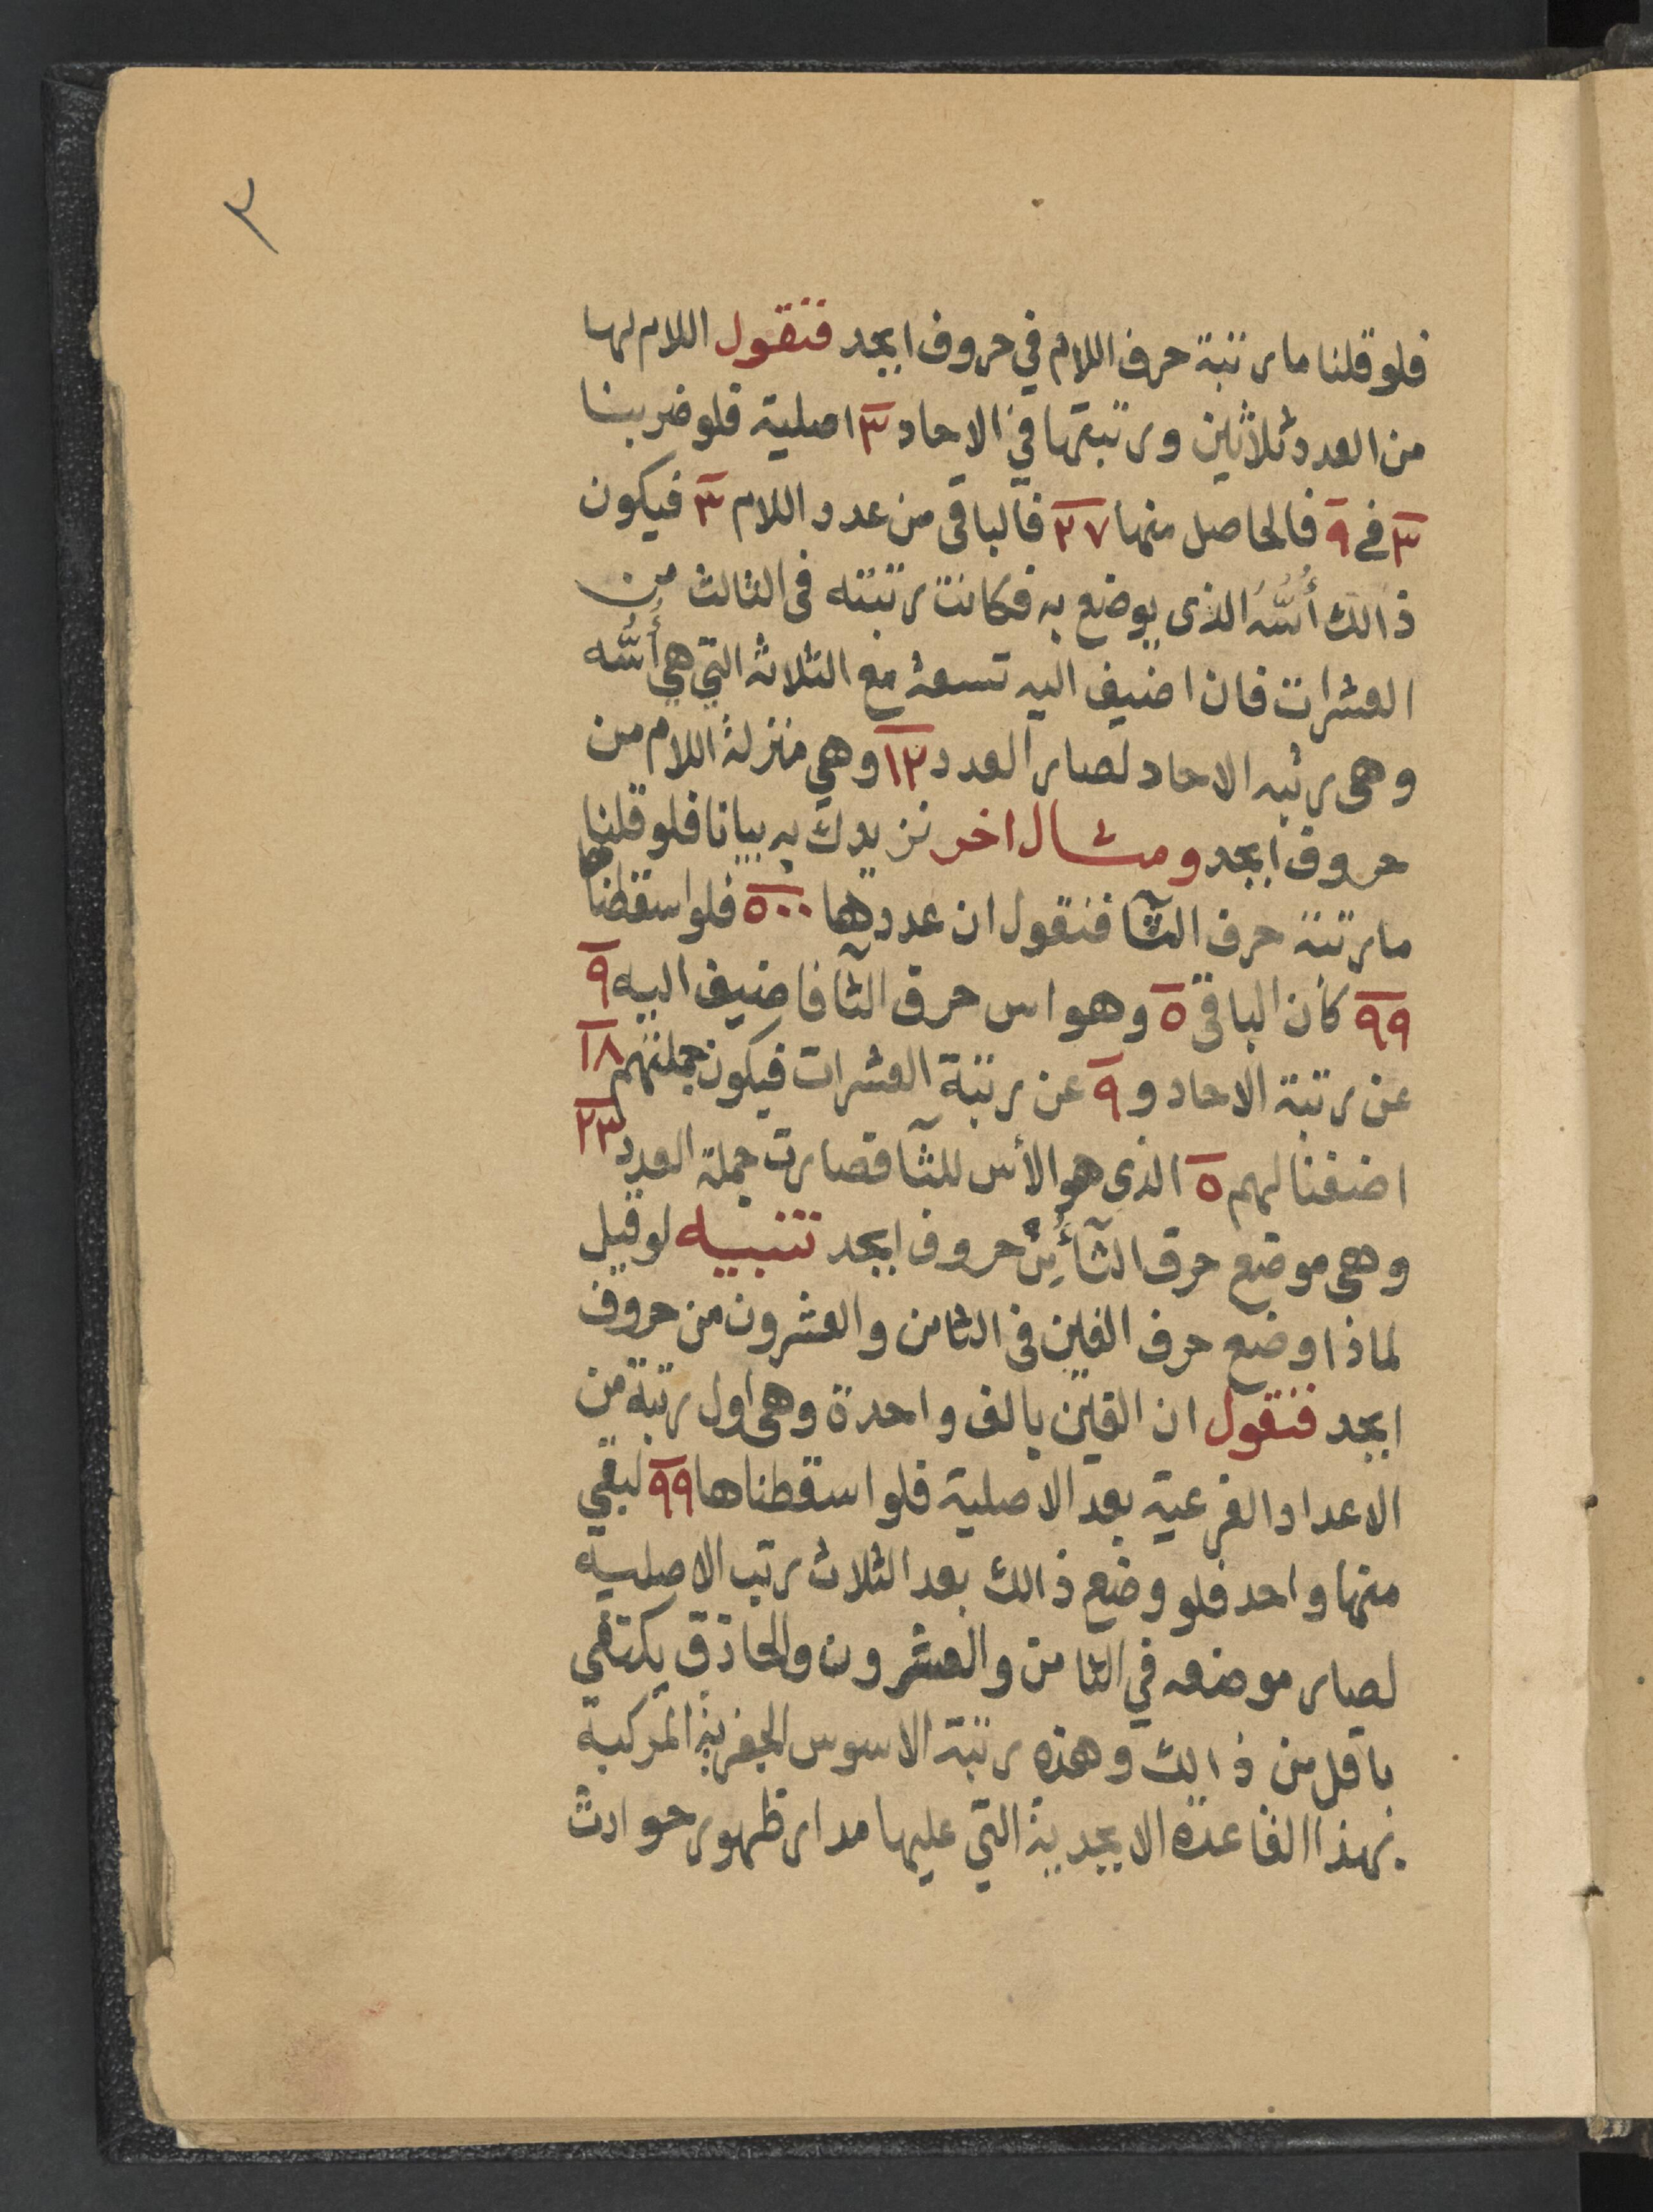 ٣
فلو قلنا ما رتبة حرف اللام في حروف ابجد فنقول اللام لها
من العدد ثلاثين ورتبتها في الاحاد ٣ اصلية فلو ضربنا
٣ في ٩ فالحاصل منها ٢٧ فالباقى من عدد اللام ٣ فيكون
ذالك أُسُّهُ الذى يوضع به فكانت رتبته فى الثالث من
العشرات فان اضيف اليه تسعة مع الثلاثه التي هي أُسُّه
وهى رتبه الاحاد لصار العدد ١٢ وهي منزلة اللام من
حروف ابجد ومثال اخر نزيدك به بيانا فلو قلنا
ما رتبة حرف الثآ فنقول ان عددها ٥٠٠ فلو اسقطناها
٩٩ كان الباقي ٥ وهو اس حرف الثآ فاضيف اليه ٩
عن رتبة الاحاد و ٩ عن رتبة العشرات فيكون جملتهم ١٨
اضفنا لهم ٥ الذى هو الأس للثآ فصارت جملة العدد ٢٣
وهى موضع حرف الثآ من حروف ابجد تنبيه لو قيل
لماذا وضع حرف الغين فى الثامن والعشرون من حروف
ابجد فنقول ان الغين بالف واحدة وهى اول رتبة من
الاعداد الفرعية بعد الاصلية فلو اسقطناها ٩٩ لبقي
منها واحد فلو وضع ذالك بعد الثلاث رتب الاصليه
لصار موضعه في الثامن والعشرون والحاذق يكتفي
باقل من ذالك وهذه رتبة الاسوس الجفرية المركبة
بهذا القاعدة الابجدية التي عليها مدار ظهور حوادث